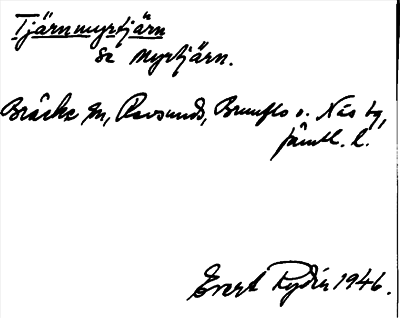 Tjärnmyrtjärn
se Myrtjärn.
Bräcke sn, Revsunds, Brunflo o. Näs tg,
Jämtl. l.
Evert Rydin 1946.